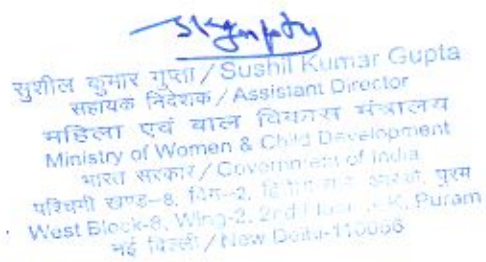 सुशील कुमार गुप्ता / Sushil Kumar Gupta
सहायक निदेशक / Assistant Director
महिला एवं बाल विकास मंत्रालय
Ministry of Women & Child Development
भारत सरकार / Government of India
पश्चिमी खण्ड-8, विंग-2, पुरम
West Block-8, Wing-2, 2nd Puram
नई दिल्ली / New Delhi-110066